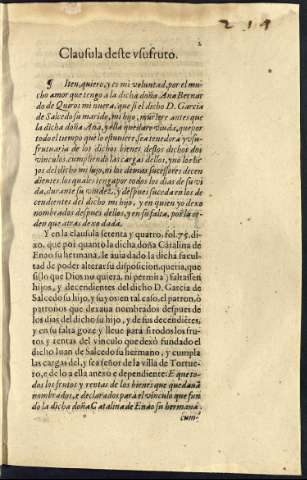 214
2
Clausula deste vsufruto.
¶ Iten, quiero, y es mi voluntad, por el mu-
cho amor que tengo a la dicha doña Ana Bernar
do de Quiros mi nuera, que si el dicho D. Garcia
de Salcedo su marido, mi hijo, muriere antes que
la dicha doña Ana, y ella quedare viuda, que por
todo el tiempo que lo estuuiere, sea tenedora y vsu-
frutuaria de los dichos bienes destos dichos dos
vinculos, cumpliendo las cargas dellos, y no los hi-
jos del dicho mi hijo, ni los demas sucessores decen
dientes, los quales tengan por todos los dias de su vi
da, durante su viudez, y despues suceda en los de
cendientes del dicho mi hijo, y en quien yo dexo
nombrados despues dellos, y en su falta, por la or-
den que atras dexo dada.
Y en la clausula setenta y quatro, fol. 76.
dixo, que por quanto la dicha doña Catalina de
Enao su hermana, le auia dado la dicha facultad
de poder alterar su disposicion, queria, que
si (lo que Dios no quiera, ni permita) faltassen
hijos, y decendientes del dicho D. Garcia de
Salcedo su hijo, y suyos en tal caso, el patron, ò
patrones que dexaua nombrados despues de
los dias del dicho su hijo, y de sus decendietes,
y en su falta goze y lleue para si todos los fru-
tos y rentas del vinculo que dexò fundado el
dicho Iuan de Salcedo su hermano, y cumpla
las cargas del, y sea señor de la villa de Tortue-
ro, e de lo a ella anexo e dependiente: E que to-
dos los frutos y rentas de los bienes que quedauã
nombrados, e declarados para el vinculo que fun
dò la dicha doña Catalina de Enao su hermana